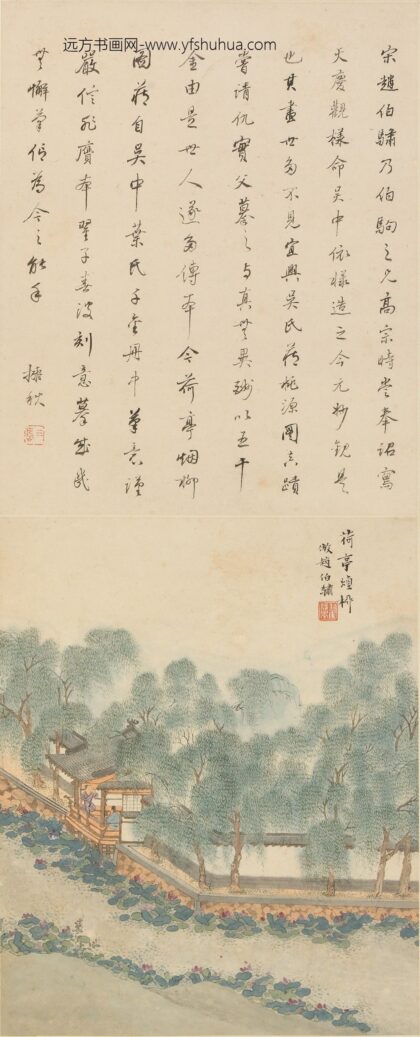 远方书画网-www.yfshuhua.com
宋趙伯驌乃伯駒之兄高宗時嘗奉詔寫
天慶觀樣命吳中依樣造之今元妙觀是
也其畫世多不見宜興吳氏藏桃源圖真蹟
嘗請仇實父摹之與真無異酬以五十
金由是世人遂多傳本今荷亭烟柳
圖藏自吳中葉氏千金冊中筆意謹
嚴信非贋本翟子善波刻意摹成幾
無懈筆信為今之能手
荷亭煙柳
倣趙伯驌